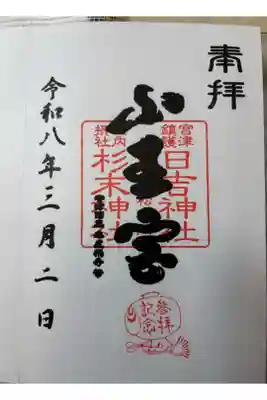 奉拝
山王宮
宮津
鎮護
日吉神社
境内
摂社
杉末神社
令和八年三月二日
参拝
記念